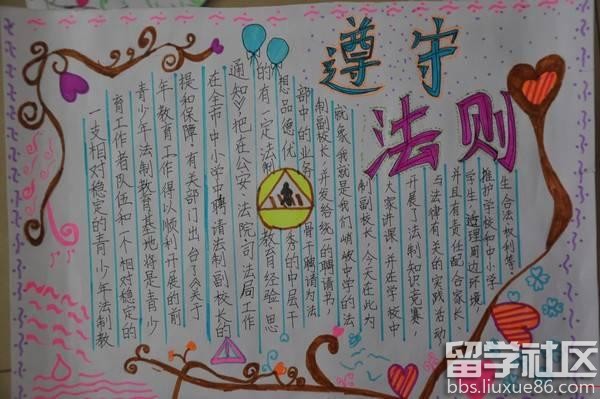 遵守
法则
一支相对稳定的青少年法制教
育工作者队伍和一个相对稳定的
青少年法制教育基地将是青少
年教育工作得以顺利开展的前
提和保障,有关部门出台了《关于
在全市中小学中聘请法制副校长的
通知》,把在公安、法院、司法局工作
的有一定法制教育经验、思
想品德优秀的中层干
部中的业务骨干聘请为法
制副校长,并发给统一的聘请书,
就象我就是我们峭峡中学的法
制副校长,今天在此为
大家讲课,并在学校中
开展了法制知识竞赛,
与法律有关的实践活动
并且有责任配合家长、
学生、适理周边环境
维护学校和中小学
生合法权利等。
留学社区
bbs.liuxue86.com